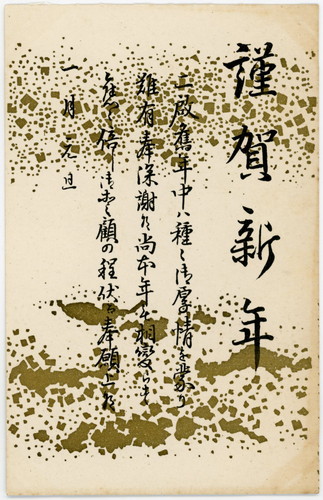 謹賀新年
二殿舊年中ハ種々御厚情を蒙り
難有奉深謝候尚本年も相變らす
舊ニ倍し御愛顧の程伏て奉願上候
一月元旦